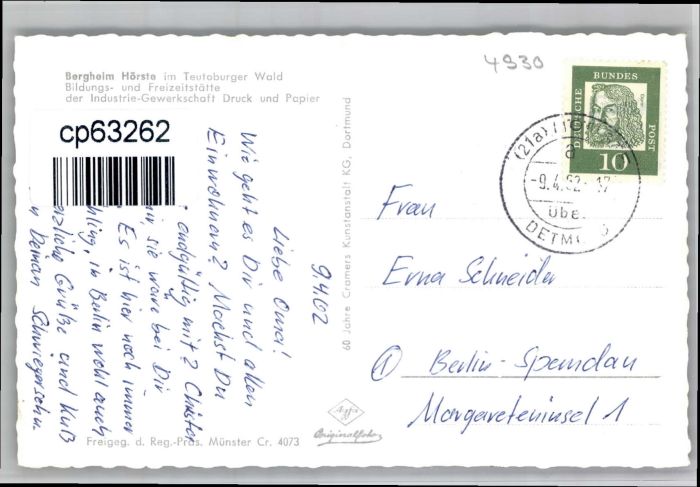 4930
Bergheim Hörste im Teutoburger Wald
Bildungs- und Freizeitstätte
der Industrie-Gewerkschaft Druck und Papier
cp63262
DEUTSCHE
BUNDES
POST
Dürer
10
(21a)
a
-9.4.62-17
über
DETMOLD
9.4.62
Liebe Oma!
Wie geht es Dir und allen
Einwohnern? Machst Du
endgültig mit? Christel
sie wäre bei Dir
Es ist hier noch immer
hling, in Berlin wohl auch
rzliche Grüße und Kuß
n Deinem Schwiegersohn
60 Jahre Cramers Kunstanstalt KG, Dortmund
Frau
Erna Schneider
1 Berlin-Spandau
Margareteninsel 1
Agfa
Originalfoto
Freigeg. d. Reg.-Präs. Münster Cr. 4073